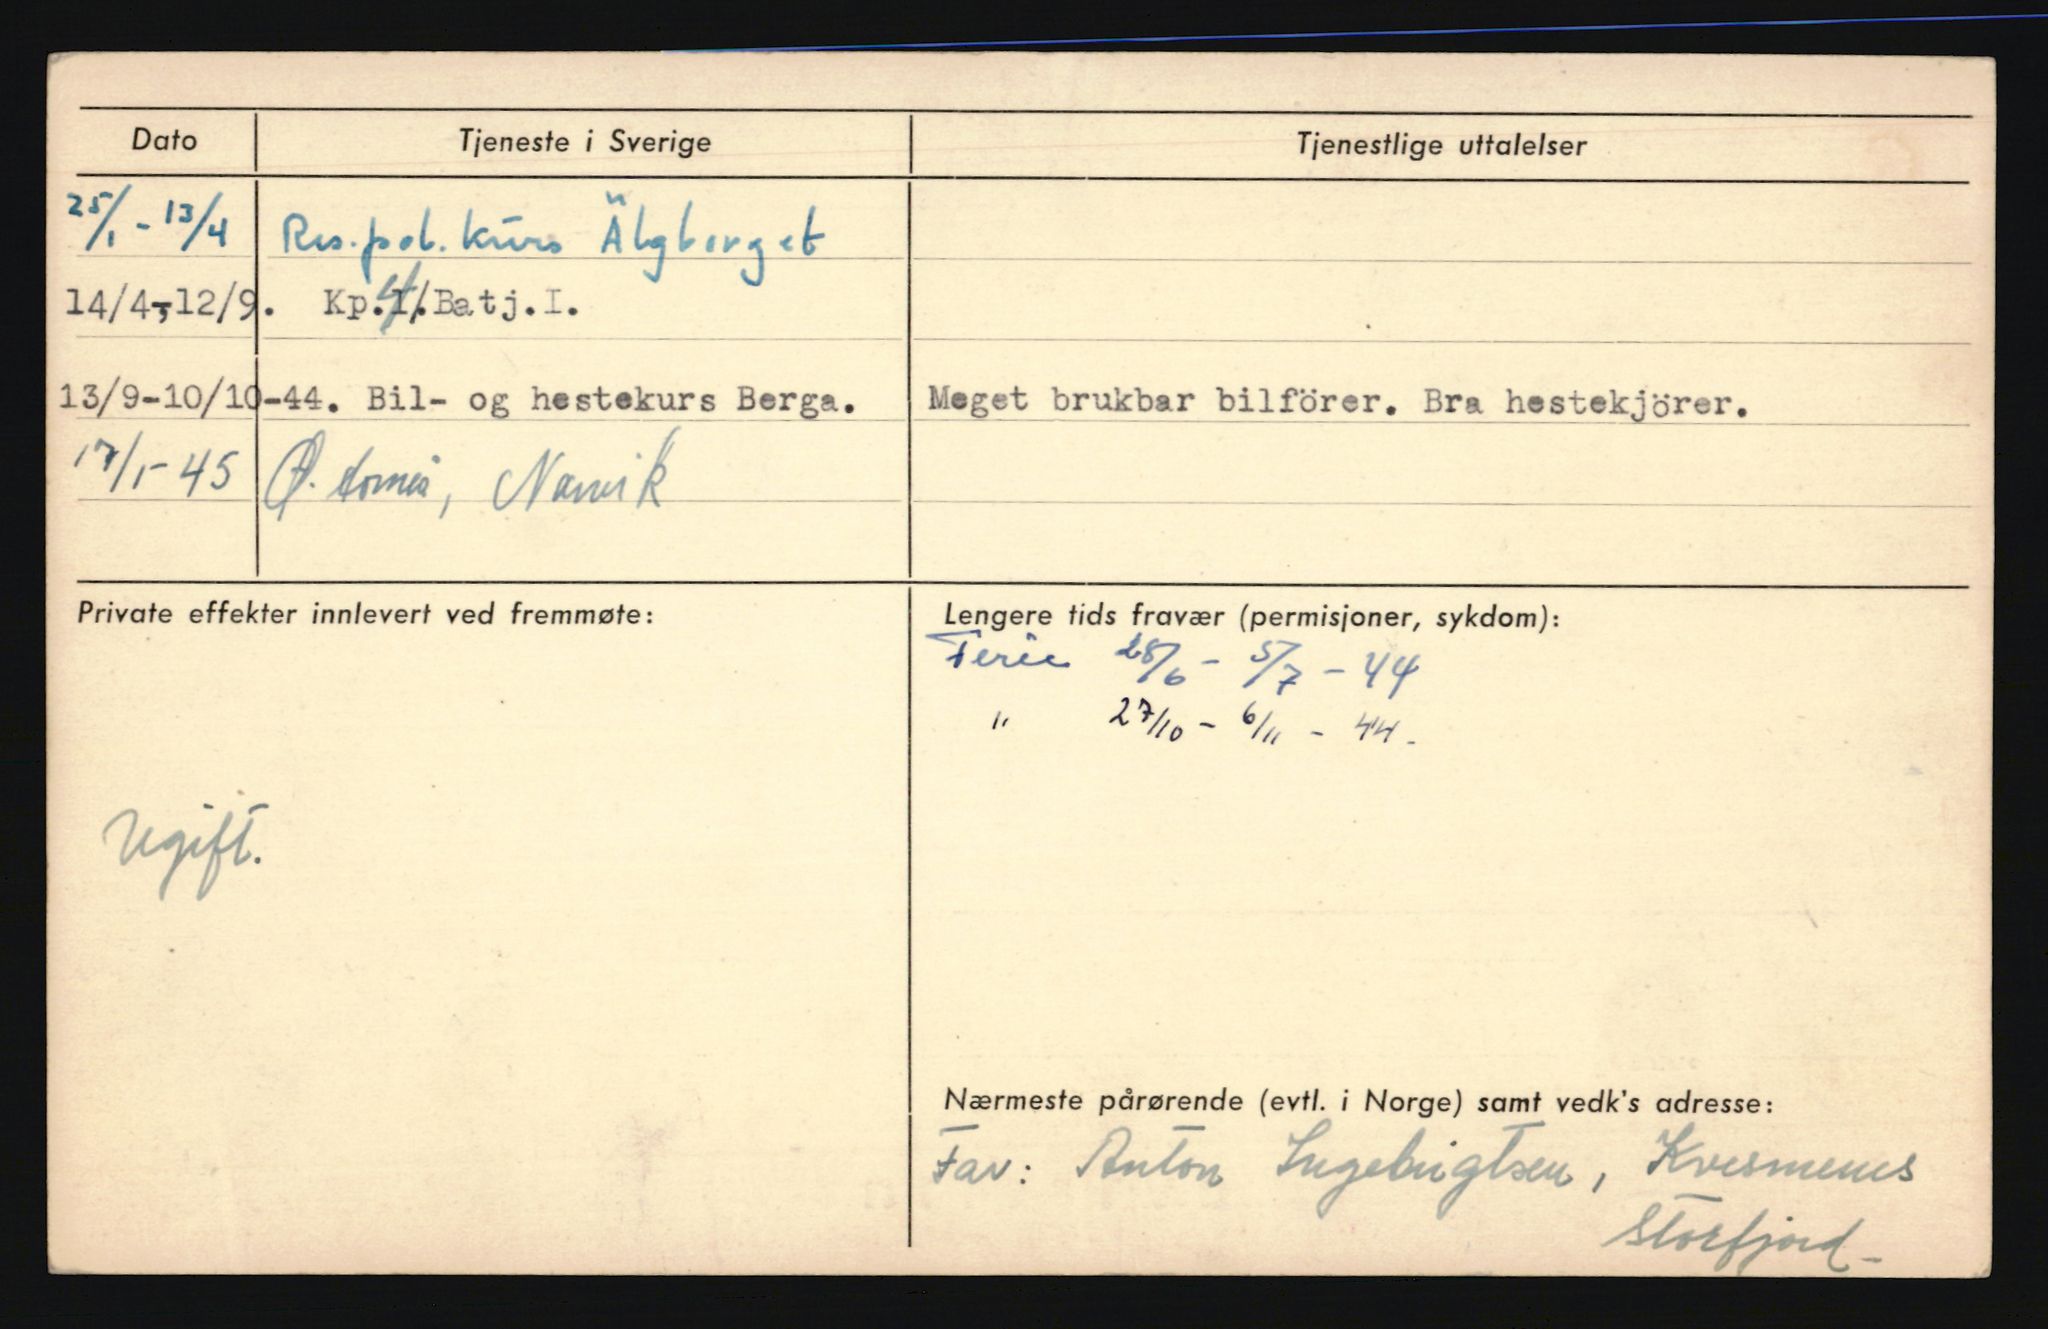 Dato Tjeneste i Sverige Tjenestlige uttalelser
25/1 - 13/4 Res. pol. kurs Älgberget
14/4-12/9. Kp.4/.Batj.I.
13/9-10/10-44. Bil- og hestekurs Berga. Meget brukbar bilförer. Bra hestekjörer.
17/1-45 Ø. , Narvik
Private effekter innlevert ved fremmøte: Lengere tids fravær (permisjoner, sykdom):
Ferie 28/6 - 5/7 - 44
" 27/10 - 6/11 - 44.
Ugift.
Nærmeste pårørende (evtl. i Norge) samt vedk's adresse:
Far: Anton Ingebrigtsen, Kvesmenes
Storfjord -